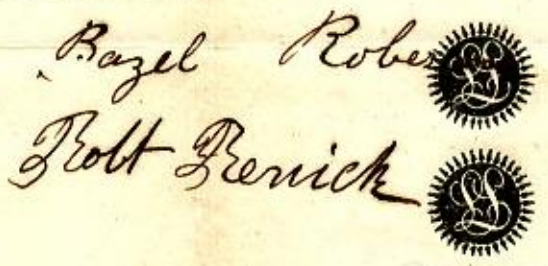 Bazel Rober
Robt Renick